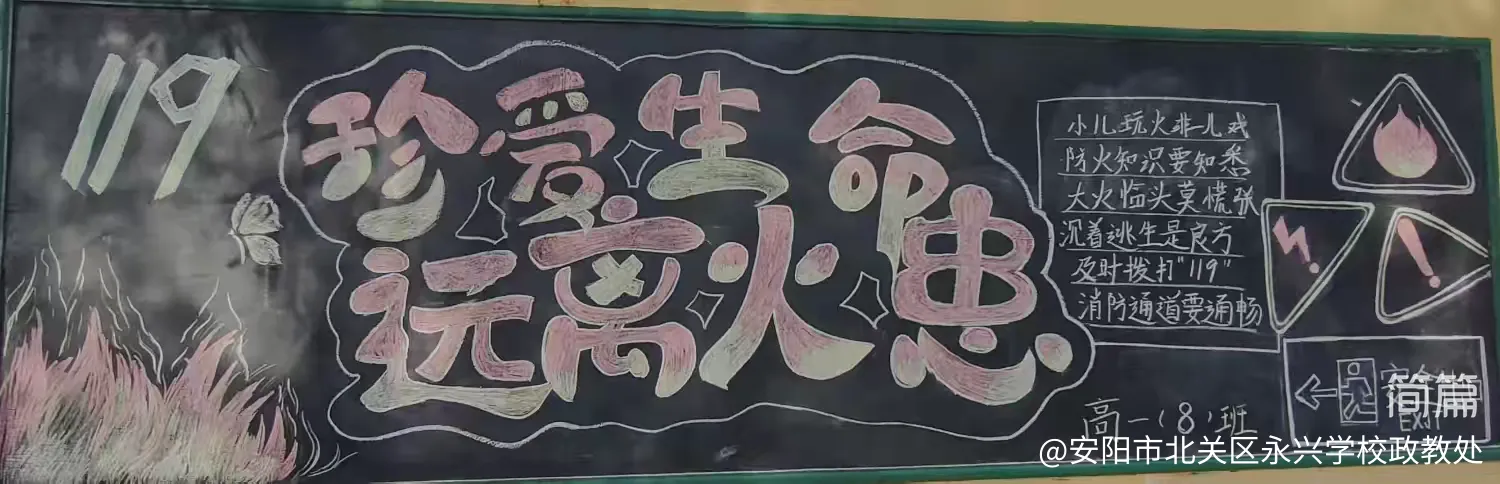 119
珍爱生命
远离火患
小儿玩火非儿戏
防火知识要知悉
大火临头莫慌张
沉着逃生是良方
及时拨打"119"
消防通道要通畅
EXIT
高一(8)班
简篇
@安阳市北关区永兴学校政教处